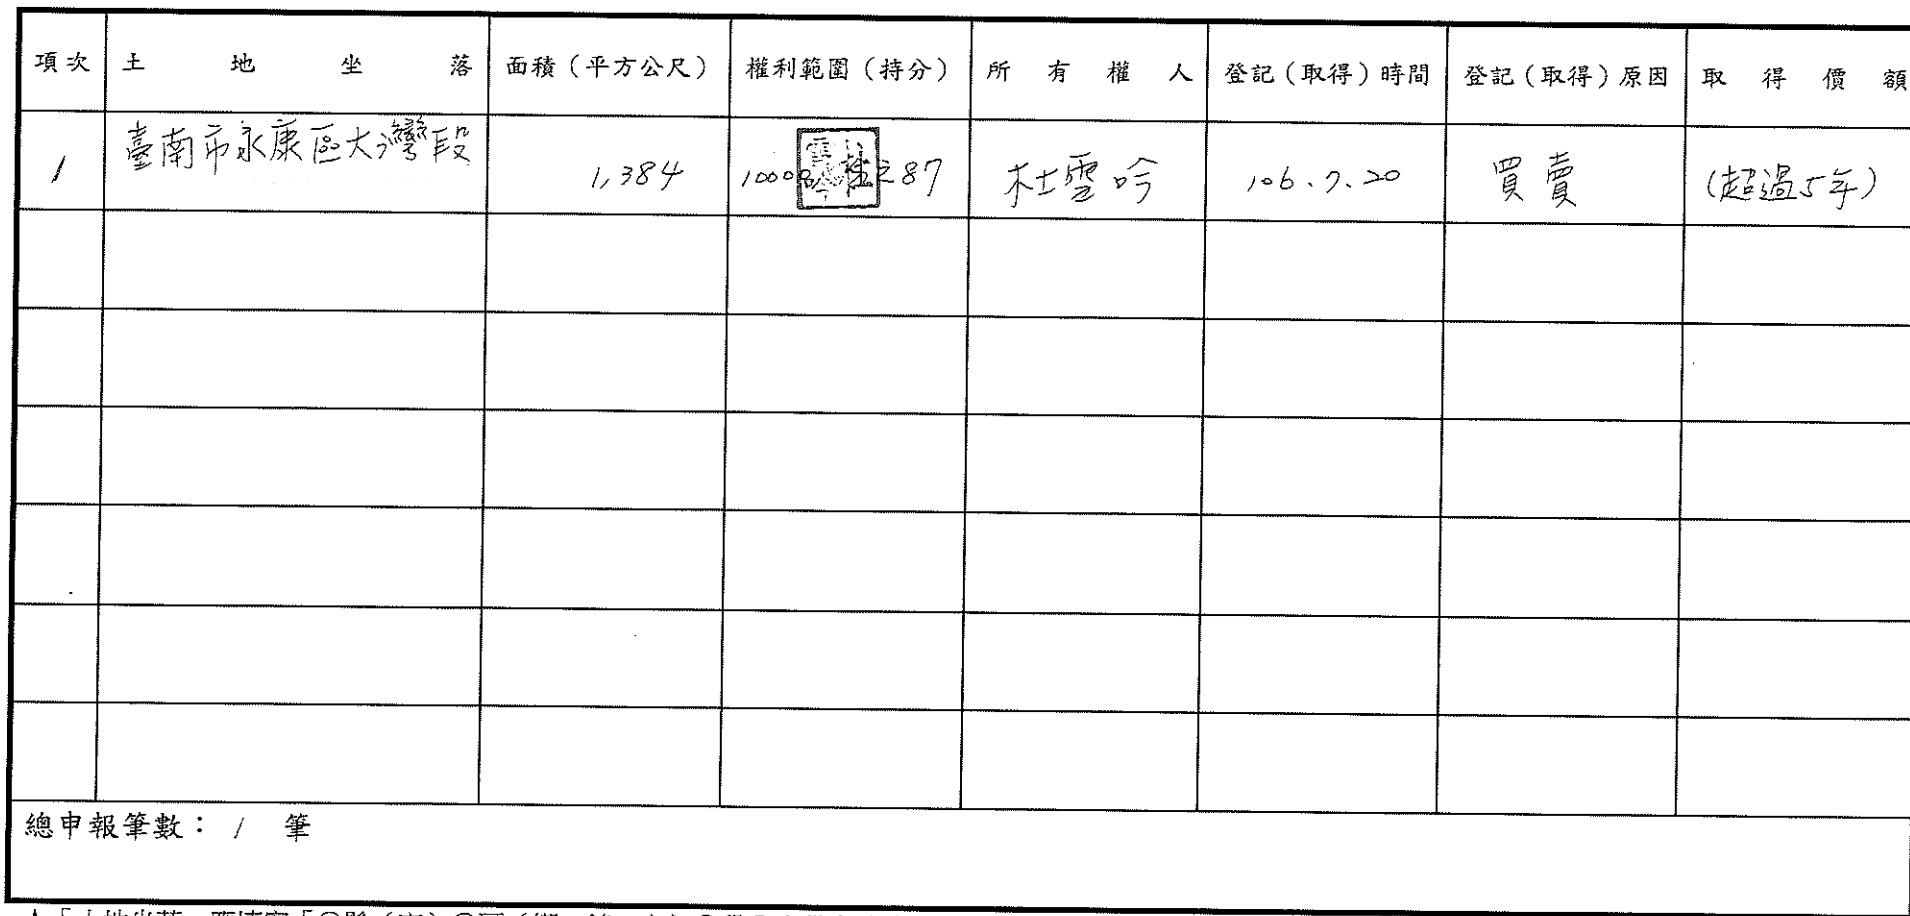 項次 土地坐落 面積（平方公尺） 權利範圍（持分） 所有權人 登記（取得）時間 登記（取得）原因 取得價額
1 臺南市永康區大灣段 1,384 10000 之87 杜雪吟 106.7.20 買賣 (超過5年)
總申報筆數： 1 筆